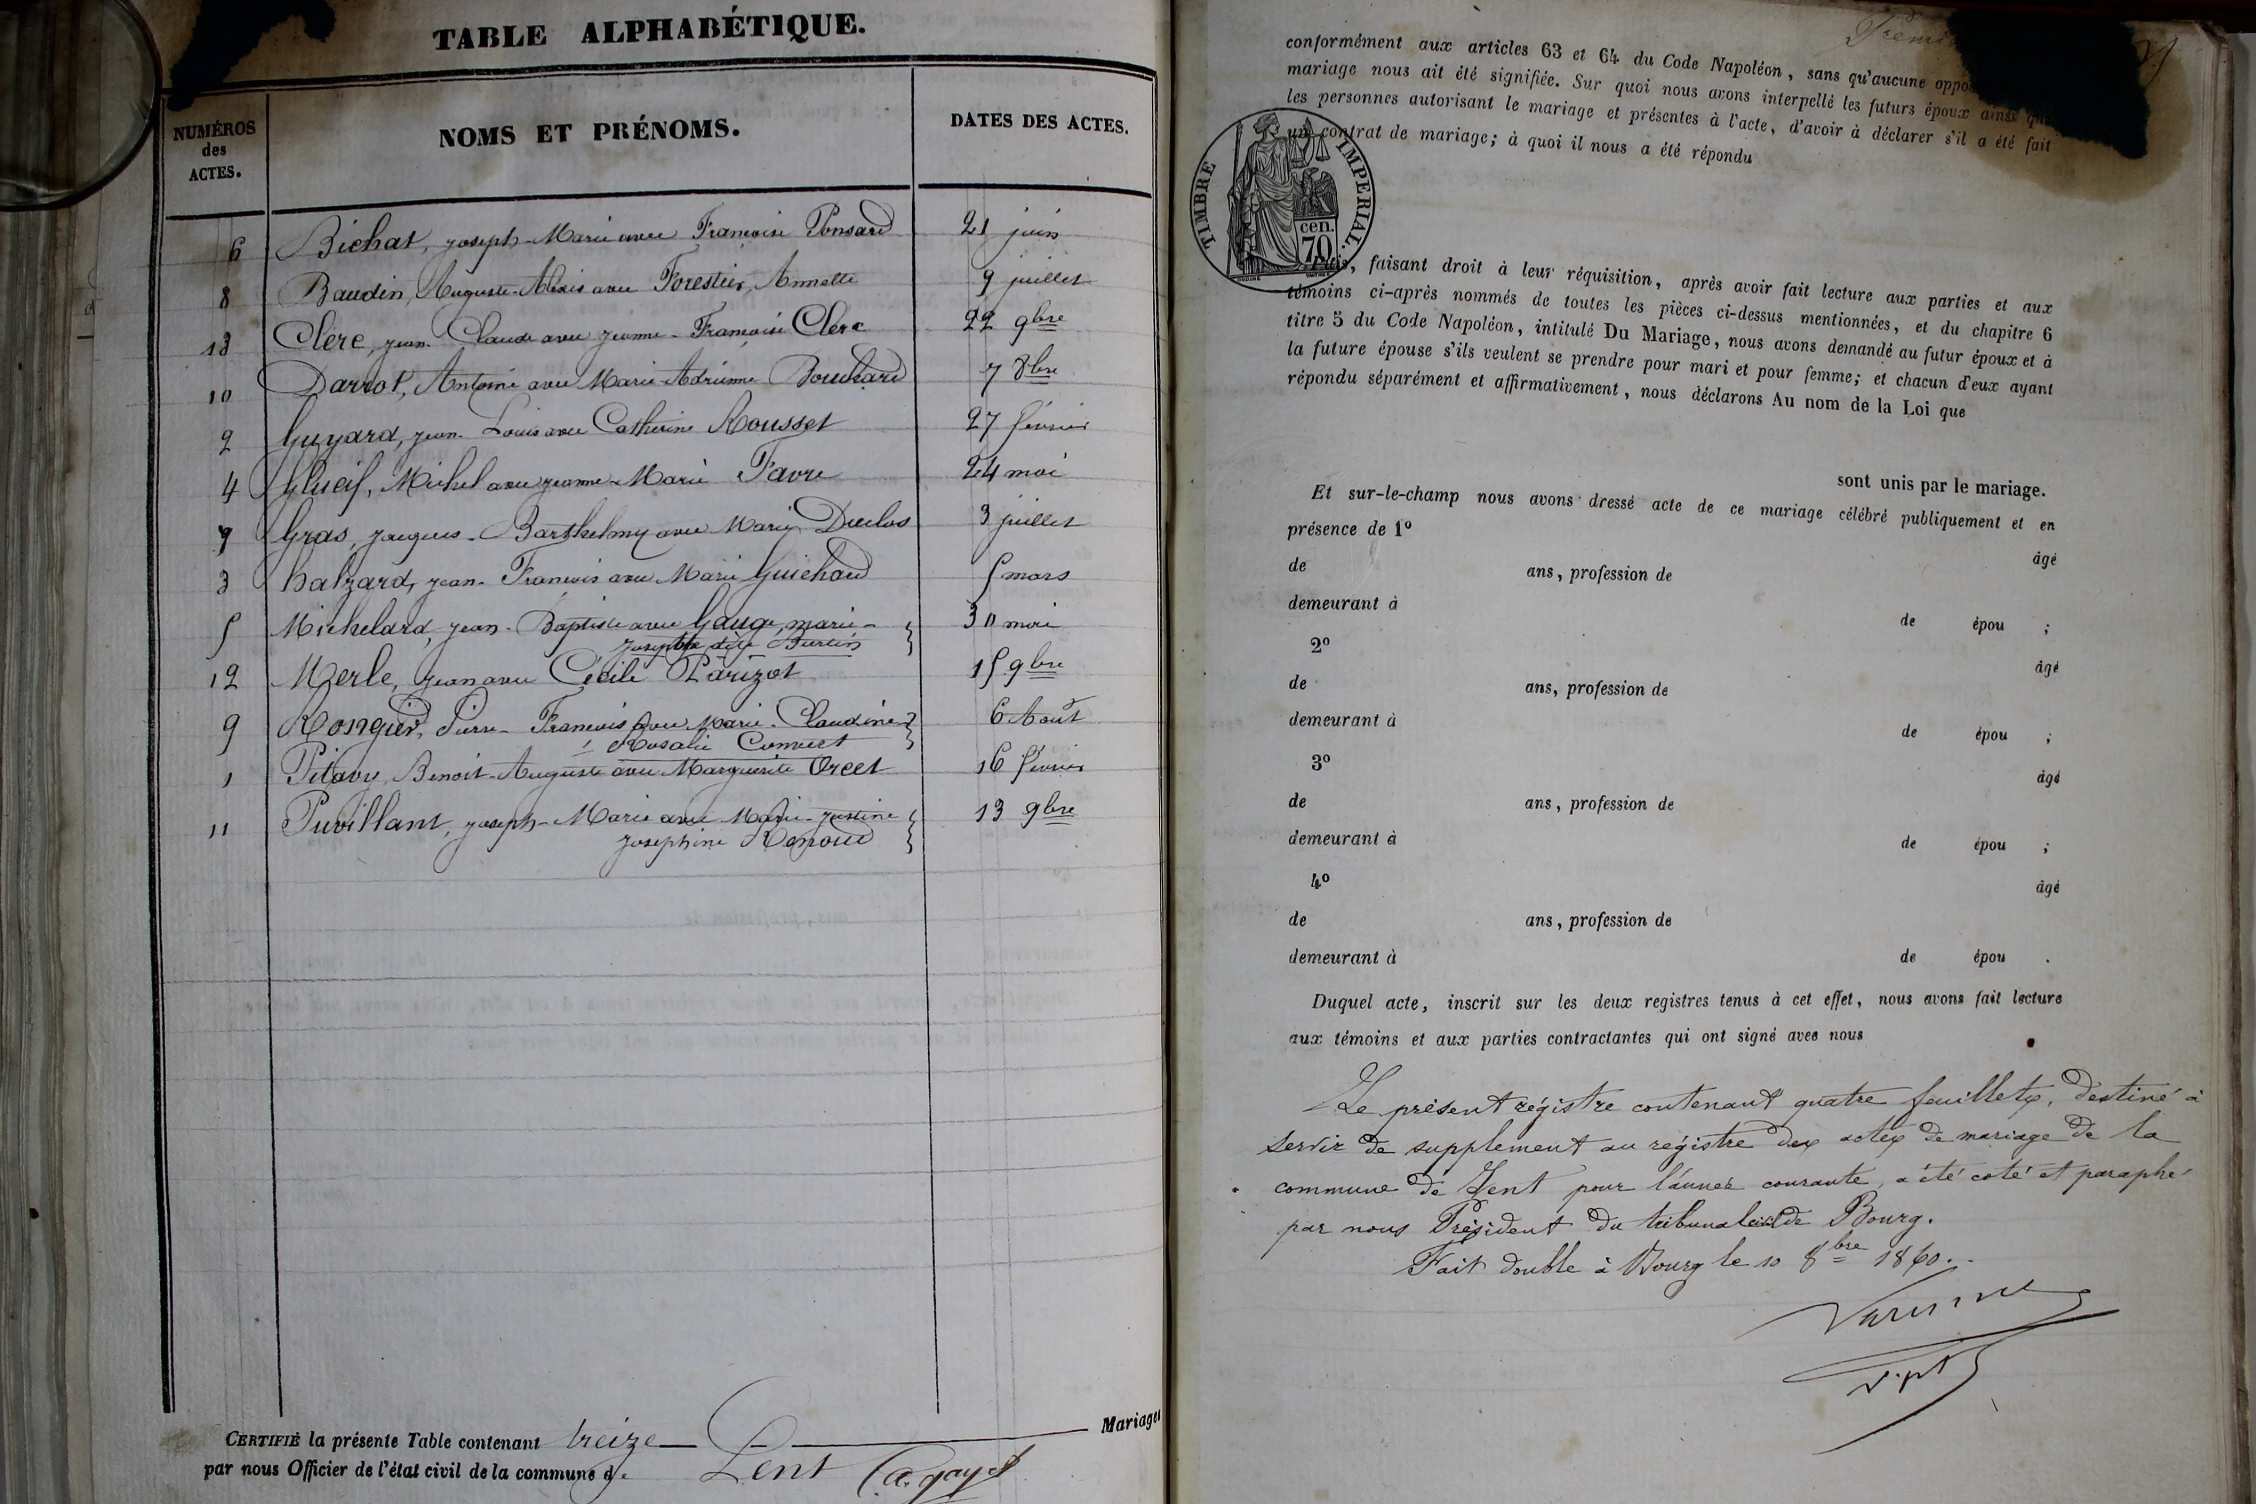 TABLE ALPHABÉTIQUE.
NUMÉROS des ACTES. NOMS ET PRÉNOMS. DATES DES ACTES.
6 Bichat, joseph-Marie avec Françoise Ponsard 21 juin
8 Baudin, Auguste-Alexis avec Forestier, Annette 9 juillet
13 Clerc, jean-Claude avec jeanne-Françoise Clerc 22 9bre
10 Darrot, Antoine avec Marie-Adrienne Bouchard 7 8bre
2 Guyard, jean-Louis avec Catherine Rousset 27 février
4 Michel avec jeanne-Marie Favre 24 mai
7 Gras, jacques-Barthelmy avec Marie Duclos 3 juillet
3 jean-François avec Marie Guichard 5 mars
5 Michelard, jean-Baptiste avec Gauge, marie- 30 mai
josephte dite Burtin
12 Merle, jean avec Cécile Parizot 15 9bre
9 Pierre-François avec Marie-Claudine 6 Août
Rosalie Convert
1 Pitavy, Benoit-Auguste avec Marguerite Orcet 16 février
11 Puvillant, joseph-Marie avec Marie-justine 13 9bre
josephine Renoud
CERTIFIÉ la présente Table contenant treize Mariages
par nous Officier de l'état civil de la commune de Lent
conformément aux articles 63 et 64 du Code Napoléon, sans qu'aucune
mariage nous ait été signifiée. Sur quoi nous avons interpellé les futurs époux ainsi
les personnes autorisant le mariage et présentes à l'acte, d'avoir à déclarer s'il a été fait
un contrat de mariage; à quoi il nous a été répondu
TIMBRE IMPÉRIAL.
cen.
70
Puis, faisant droit à leur réquisition, après avoir fait lecture aux parties et aux
témoins ci-après nommés de toutes les pièces ci-dessus mentionnées, et du chapitre 6
titre 5 du Code Napoléon, intitulé Du Mariage, nous avons demandé au futur époux et à
la future épouse s'ils veulent se prendre pour mari et pour femme; et chacun d'eux ayant
répondu séparément et affirmativement, nous déclarons Au nom de la Loi que
sont unis par le mariage.
Et sur-le-champ nous avons dressé acte de ce mariage célébré publiquement et en
présence de 1º
âgé
de ans, profession de
demeurant à de épou ;
2º
âgé
de ans, profession de
demeurant à de épou ;
3º
âgé
de ans, profession de
demeurant à de épou ;
4º
âgé
de ans, profession de
demeurant à de épou .
Duquel acte, inscrit sur les deux registres tenus à cet effet, nous avons fait lecture
aux témoins et aux parties contractantes qui ont signé avec nous
Le présent régistre contenant quatre feuillets, destiné à
servir de supplement au régistre des actes de mariage de la
commune de Lent pour l'année courante, a été coté et paraphé
par nous Président du tribunal civil de Bourg.
Fait double à Bourg le 10 8bre 1860.